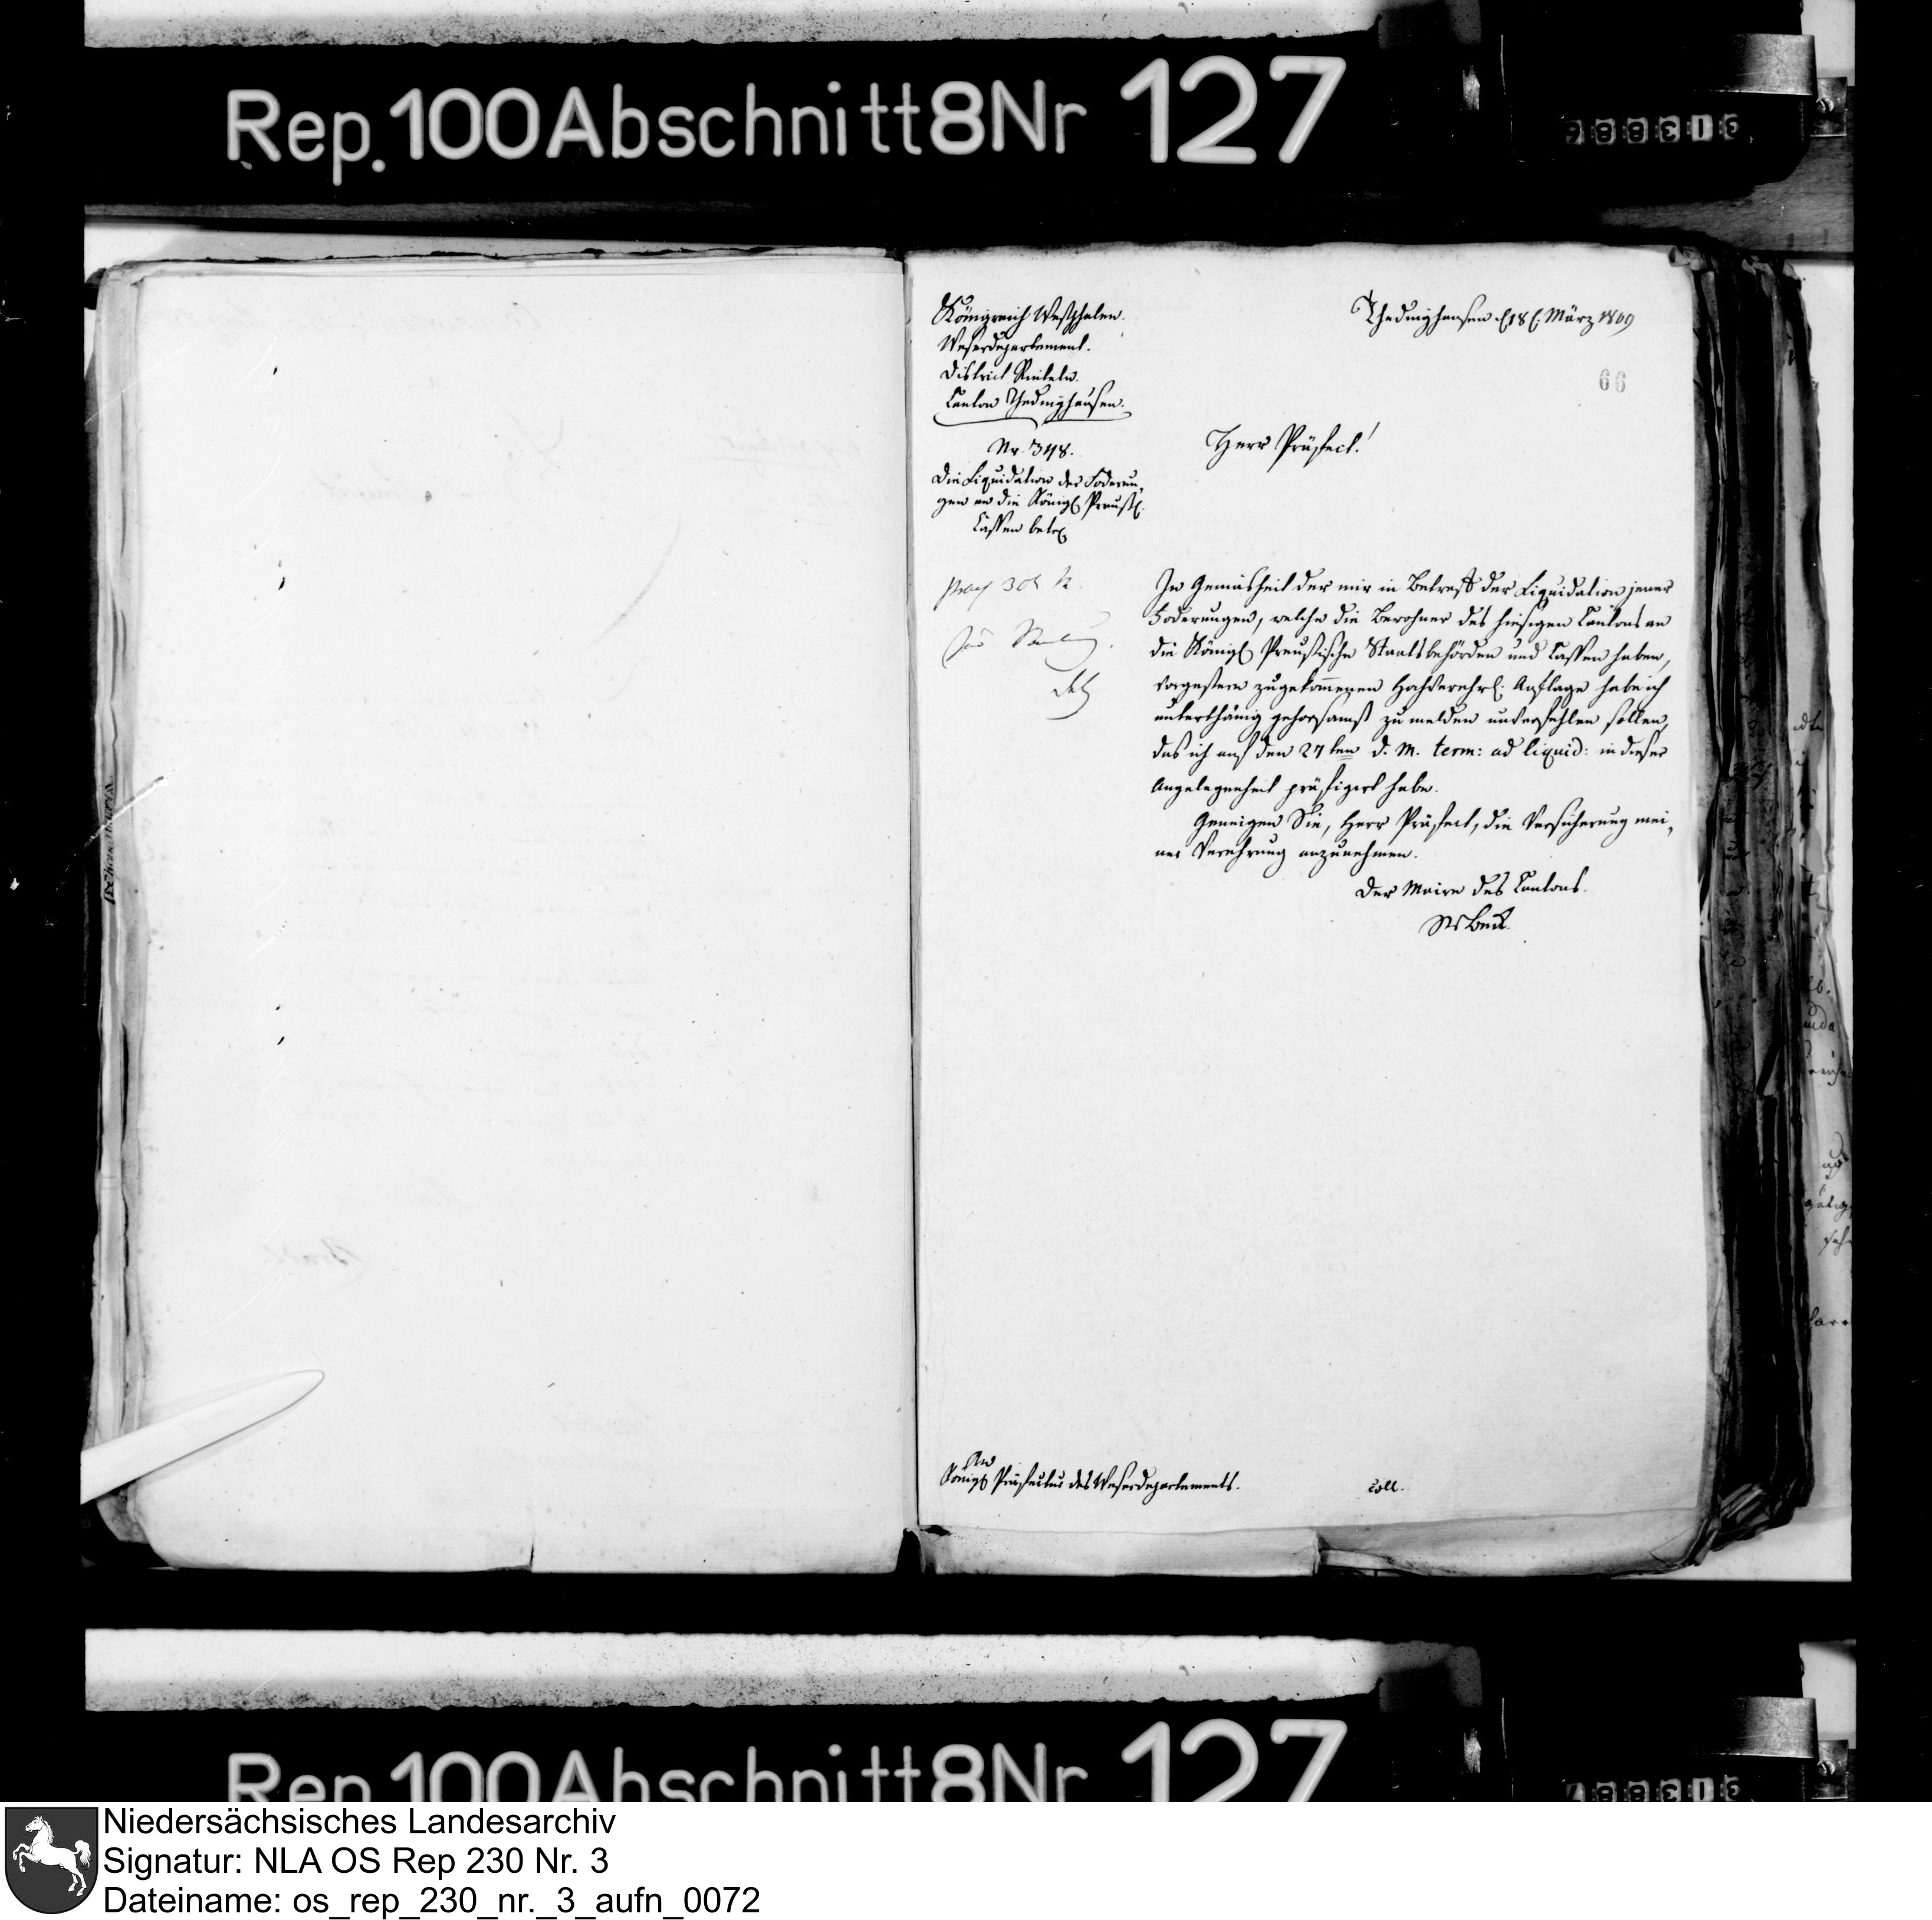 Rep. 100 Abschnitt 8 Nr 127
Königreich Westphalen.
Weserdepartement.
District Rinteln.
Canton Thedinghausen.
Thedinghausen d 18t. März 1809
66
Nr. 348.
Die Liquidation der Foderun-
gen an die Königl. Preußl.
Cassen betr.
Herr Präfect!
In Gemäsheit der mir in Betreff der Liquidation jener
Foderungen, welche die Bewohner des hiesigen Cantons an
die Königl. Preußische Staatsbehörden und Cassen haben,
vorgestern zugekommenen hochverehrl. Auflage habe ich
unterthänig gehorsamst zu melden unverfehlen sollen,
das ich auf den 27ten d. M. term: ad liquid: in dieser
Angelegenheit präfigirt habe.
Geneigen Sie, Herr Präfect, die Versicherung mei-
ner Verehrung anzunehmen.
Der Maire des Cantons.
An
Königl. Präfectur des Weserdepartements.
coll.
Rep. 100 Abschnitt 8 Nr 127
Niedersächsisches Landesarchiv
Signatur: NLA OS Rep 230 Nr. 3
Dateiname: os_rep_230_nr._3_aufn_0072